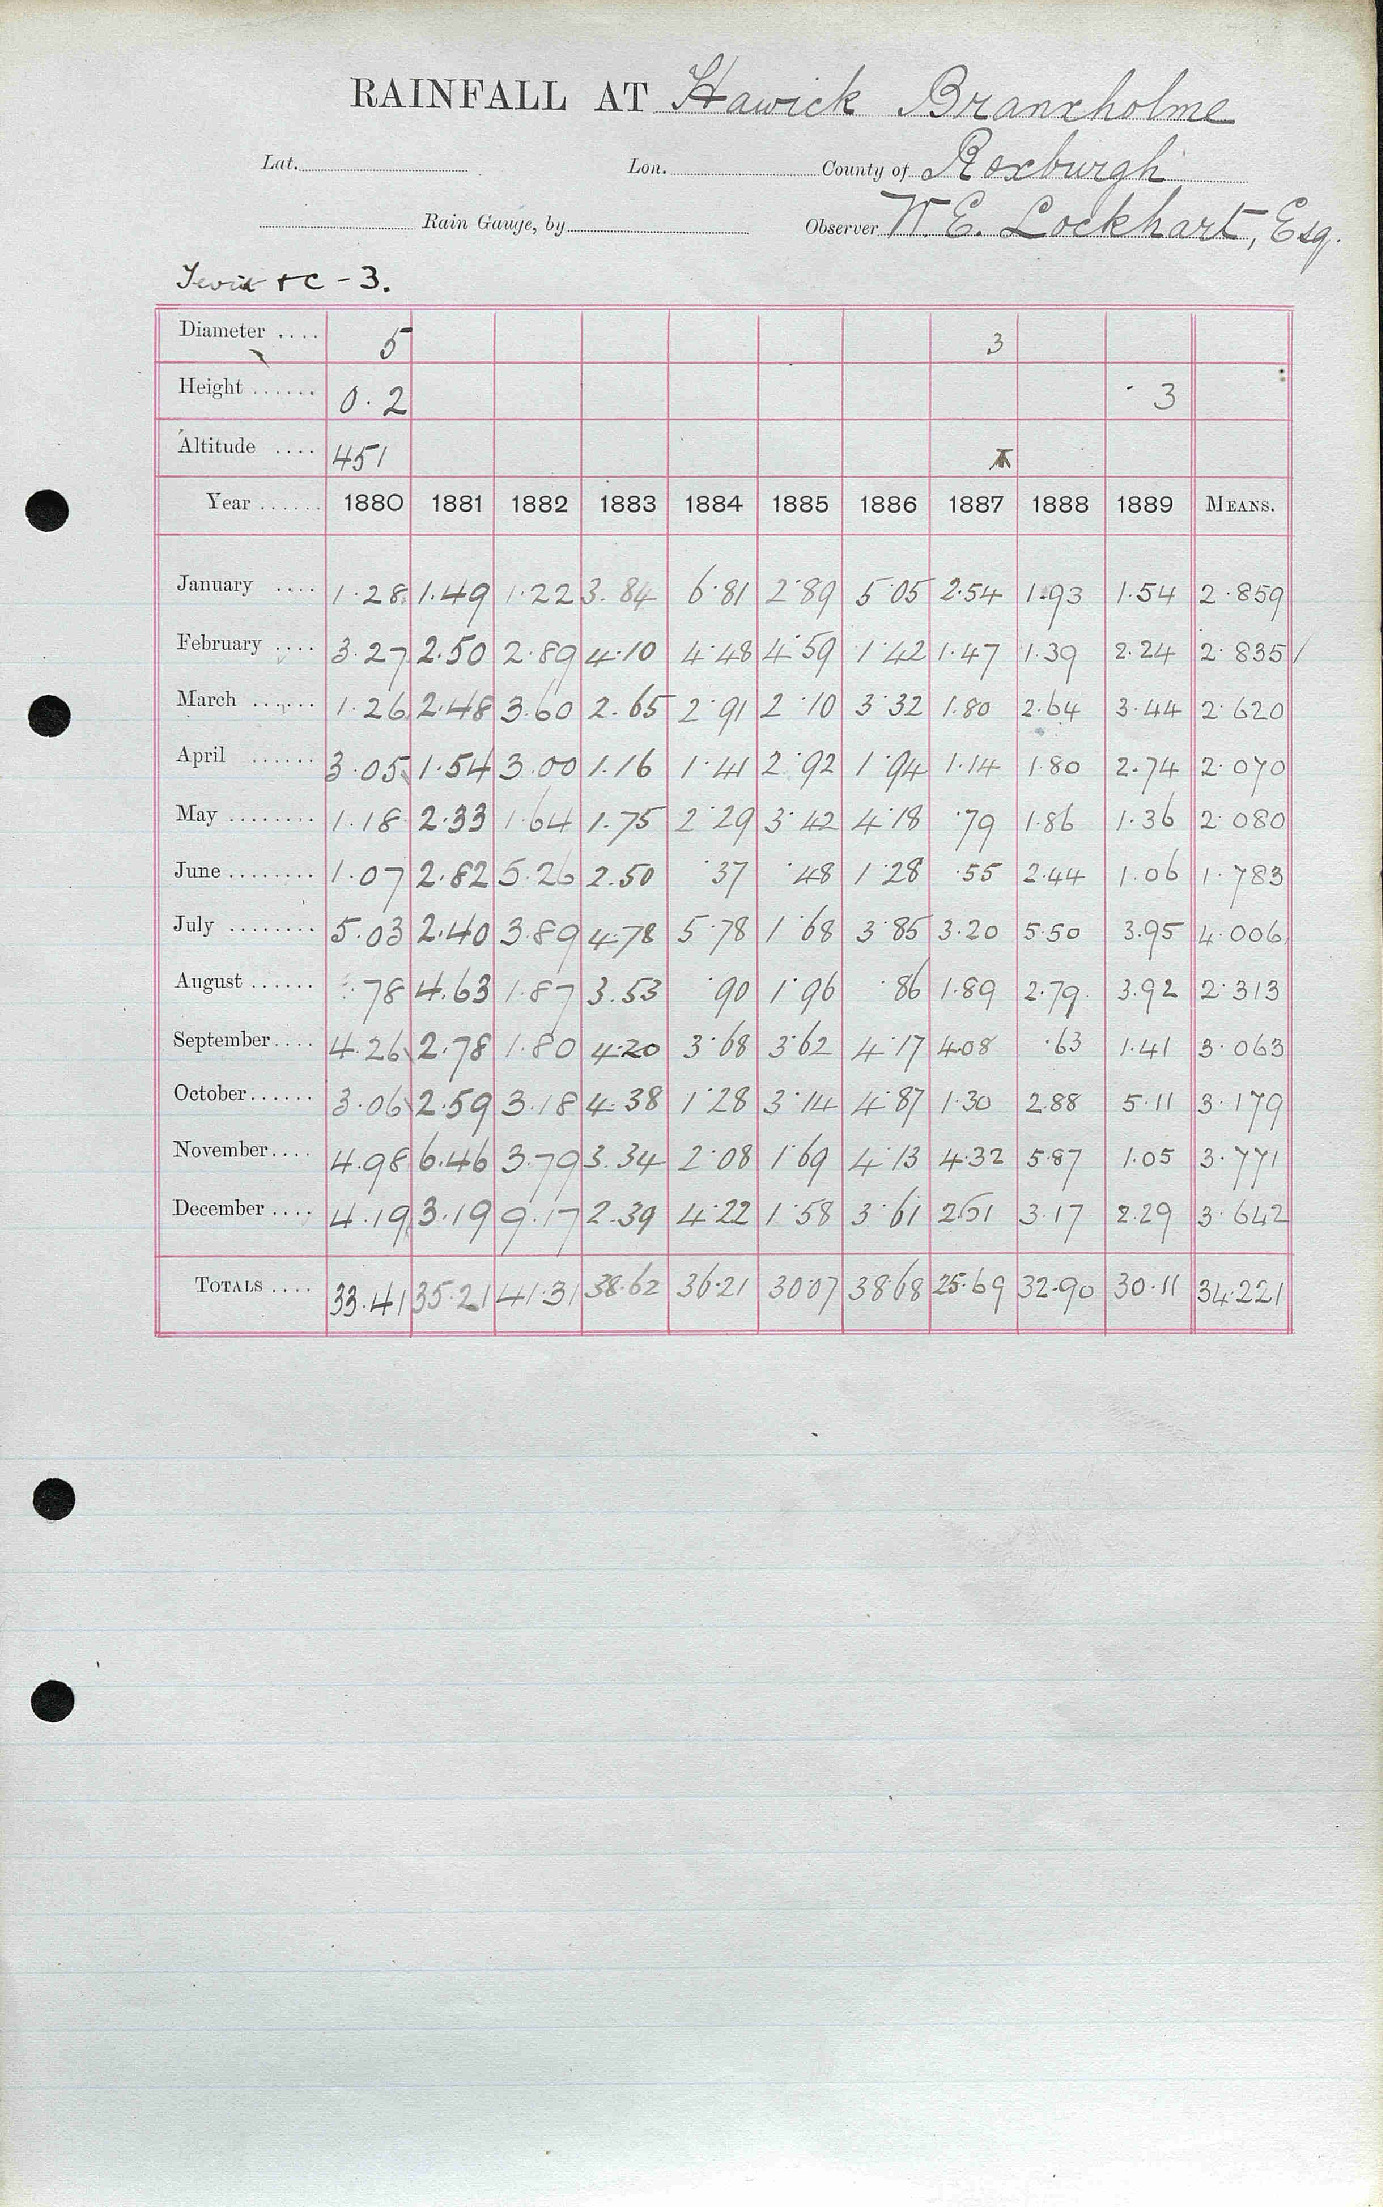 RAINFALL AT Hawick Branxholme
Lat. Lon. County of Roxburgh
Rain Gauge, by Observer W. E. Lockhart, Esq.
+ C - 3.
Diameter .... 5 3
Height ...... 0.2 3
Altitude .... 451
Year ...... 1880 1881 1882 1883 1884 1885 1886 1887 1888 1889 MEANS.
January .... 1.28 1.49 1.22 3.84 6.81 2.89 5.05 2.54 1.93 1.54 2.859
February .... 3.27 2.50 2.89 4.10 4.48 4.59 1.42 1.47 1.39 2.24 2.835
March ...... 1.26 2.48 3.60 2.65 2.91 2.10 3.32 1.80 2.64 3.44 2.620
April ...... 3.05 1.54 3.00 1.16 1.41 2.92 1.94 1.14 1.80 2.74 2.070
May ........ 1.18 2.33 1.64 1.75 2.29 3.42 4.18 .79 1.86 1.36 2.080
June ........ 1.07 2.82 5.26 2.50 .37 .48 1.28 .55 2.44 1.06 1.783
July ........ 5.03 2.40 3.89 4.78 5.78 1.68 3.85 3.20 5.50 3.95 4.006
August ...... .78 4.63 1.87 3.53 .90 1.96 .86 1.89 2.79 3.92 2.313
September .... 4.26 2.78 1.80 4.20 3.68 3.62 4.17 4.08 .63 1.41 3.063
October ...... 3.06 2.59 3.18 4.38 1.28 3.14 4.87 1.30 2.88 5.11 3.179
November .... 4.98 6.46 3.79 3.34 2.08 1.69 4.13 4.32 5.87 1.05 3.771
December .... 4.19 3.19 9.17 2.39 4.22 1.58 3.61 2.61 3.17 2.29 3.642
TOTALS .... 33.41 35.21 41.31 38.62 36.21 30.07 38.68 25.69 32.90 30.11 34.221